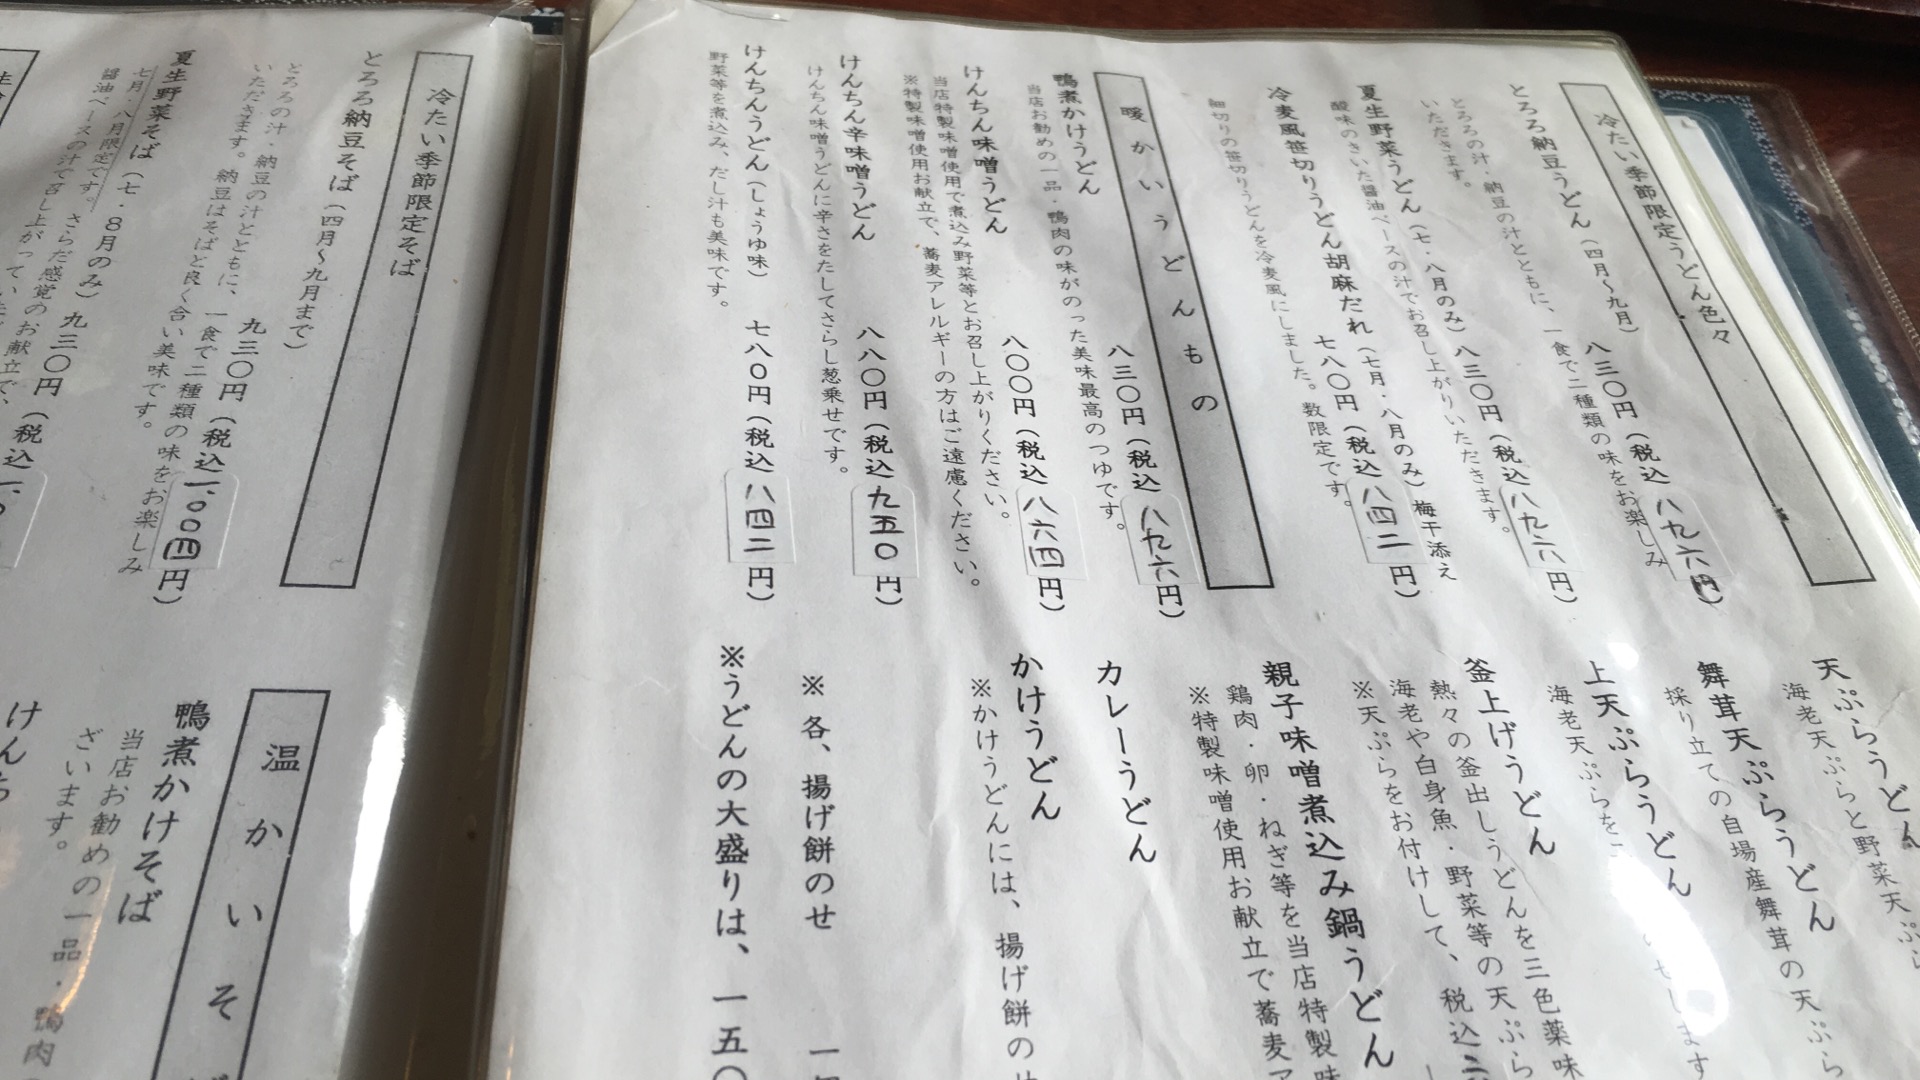 冷たい季節限定うどん色々
とろろ納豆うどん(四月〜九月) 八三〇円(税込 八九六円)
とろろの汁・納豆の汁とともに、一食で二種類の味をお楽しみ
いただきます。
夏生野菜うどん(七・八月のみ) 八三〇円(税込 八九六円)
酸味のきいた醤油ベースの汁でお召し上がりいただきます。
冷麦風笹切りうどん胡麻だれ(七月・八月のみ)梅干添え
七八〇円(税込 八四二円)
細切りの笹切りうどんを冷麦風にしました。数限定です。
暖かいうどんもの
鴨煮かけうどん 八三〇円(税込 八九六円)
当店お勧めの一品・鴨肉の味がのった美味最高のつゆです。
けんちん味噌うどん 八〇〇円(税込 八六四円)
当店特製味噌使用で煮込み野菜等とお召し上がりください。
※特製味噌使用お献立で、蕎麦アレルギーの方はご遠慮ください。
けんちん辛味噌うどん 八八〇円(税込 九五〇円)
けんちん味噌うどんに辛さをたしてさらし葱乗せです。
けんちんうどん(しょうゆ味) 七八〇円(税込 八四二円)
野菜等を煮込み、だし汁も美味です。
天ぷらうどん
海老天ぷらと野菜天ぷら
舞茸天ぷらうどん
採り立ての自場産舞茸の天ぷら
上天ぷらうどん
海老天ぷらを
のせします
釜上げうどん
熱々の釜出しうどんを三色薬味
海老や白身魚・野菜等の天ぷら
※天ぷらをお付けして、税込
親子味噌煮込み鍋うどん
鶏肉・卵・ねぎ等を当店特製味
※特製味噌使用お献立で蕎麦ア
カレーうどん
かけうどん
※かけうどんには、揚げ餅の
※各、揚げ餅のせ 一
※うどんの大盛りは、一五〇
冷たい季節限定そば
とろろ納豆そば(四月〜九月まで)
九三〇円(税込 1,00四円)
とろろの汁・納豆の汁とともに、一食で二種類の味をお楽しみ
いただきます。納豆はそばと良く合い美味です。
夏生野菜そば(七・8月のみ) 九三〇円(税込
七月・八月限定です。さらだ感覚のお献立で、
醤油ベースの汁で召し上がって
温かいそ
鴨煮かけそば
当店お勧めの一品・鴨肉
ざいます。
けんち